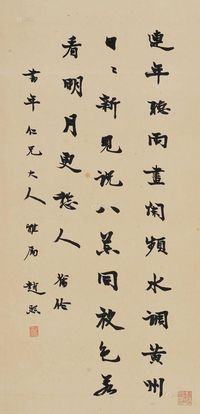 連年聽雨畫闌頻水調黃州
日〻新見說八荒同秋色若
看明月更愁人 舊作
年仁兄大人雅屬 趙熙